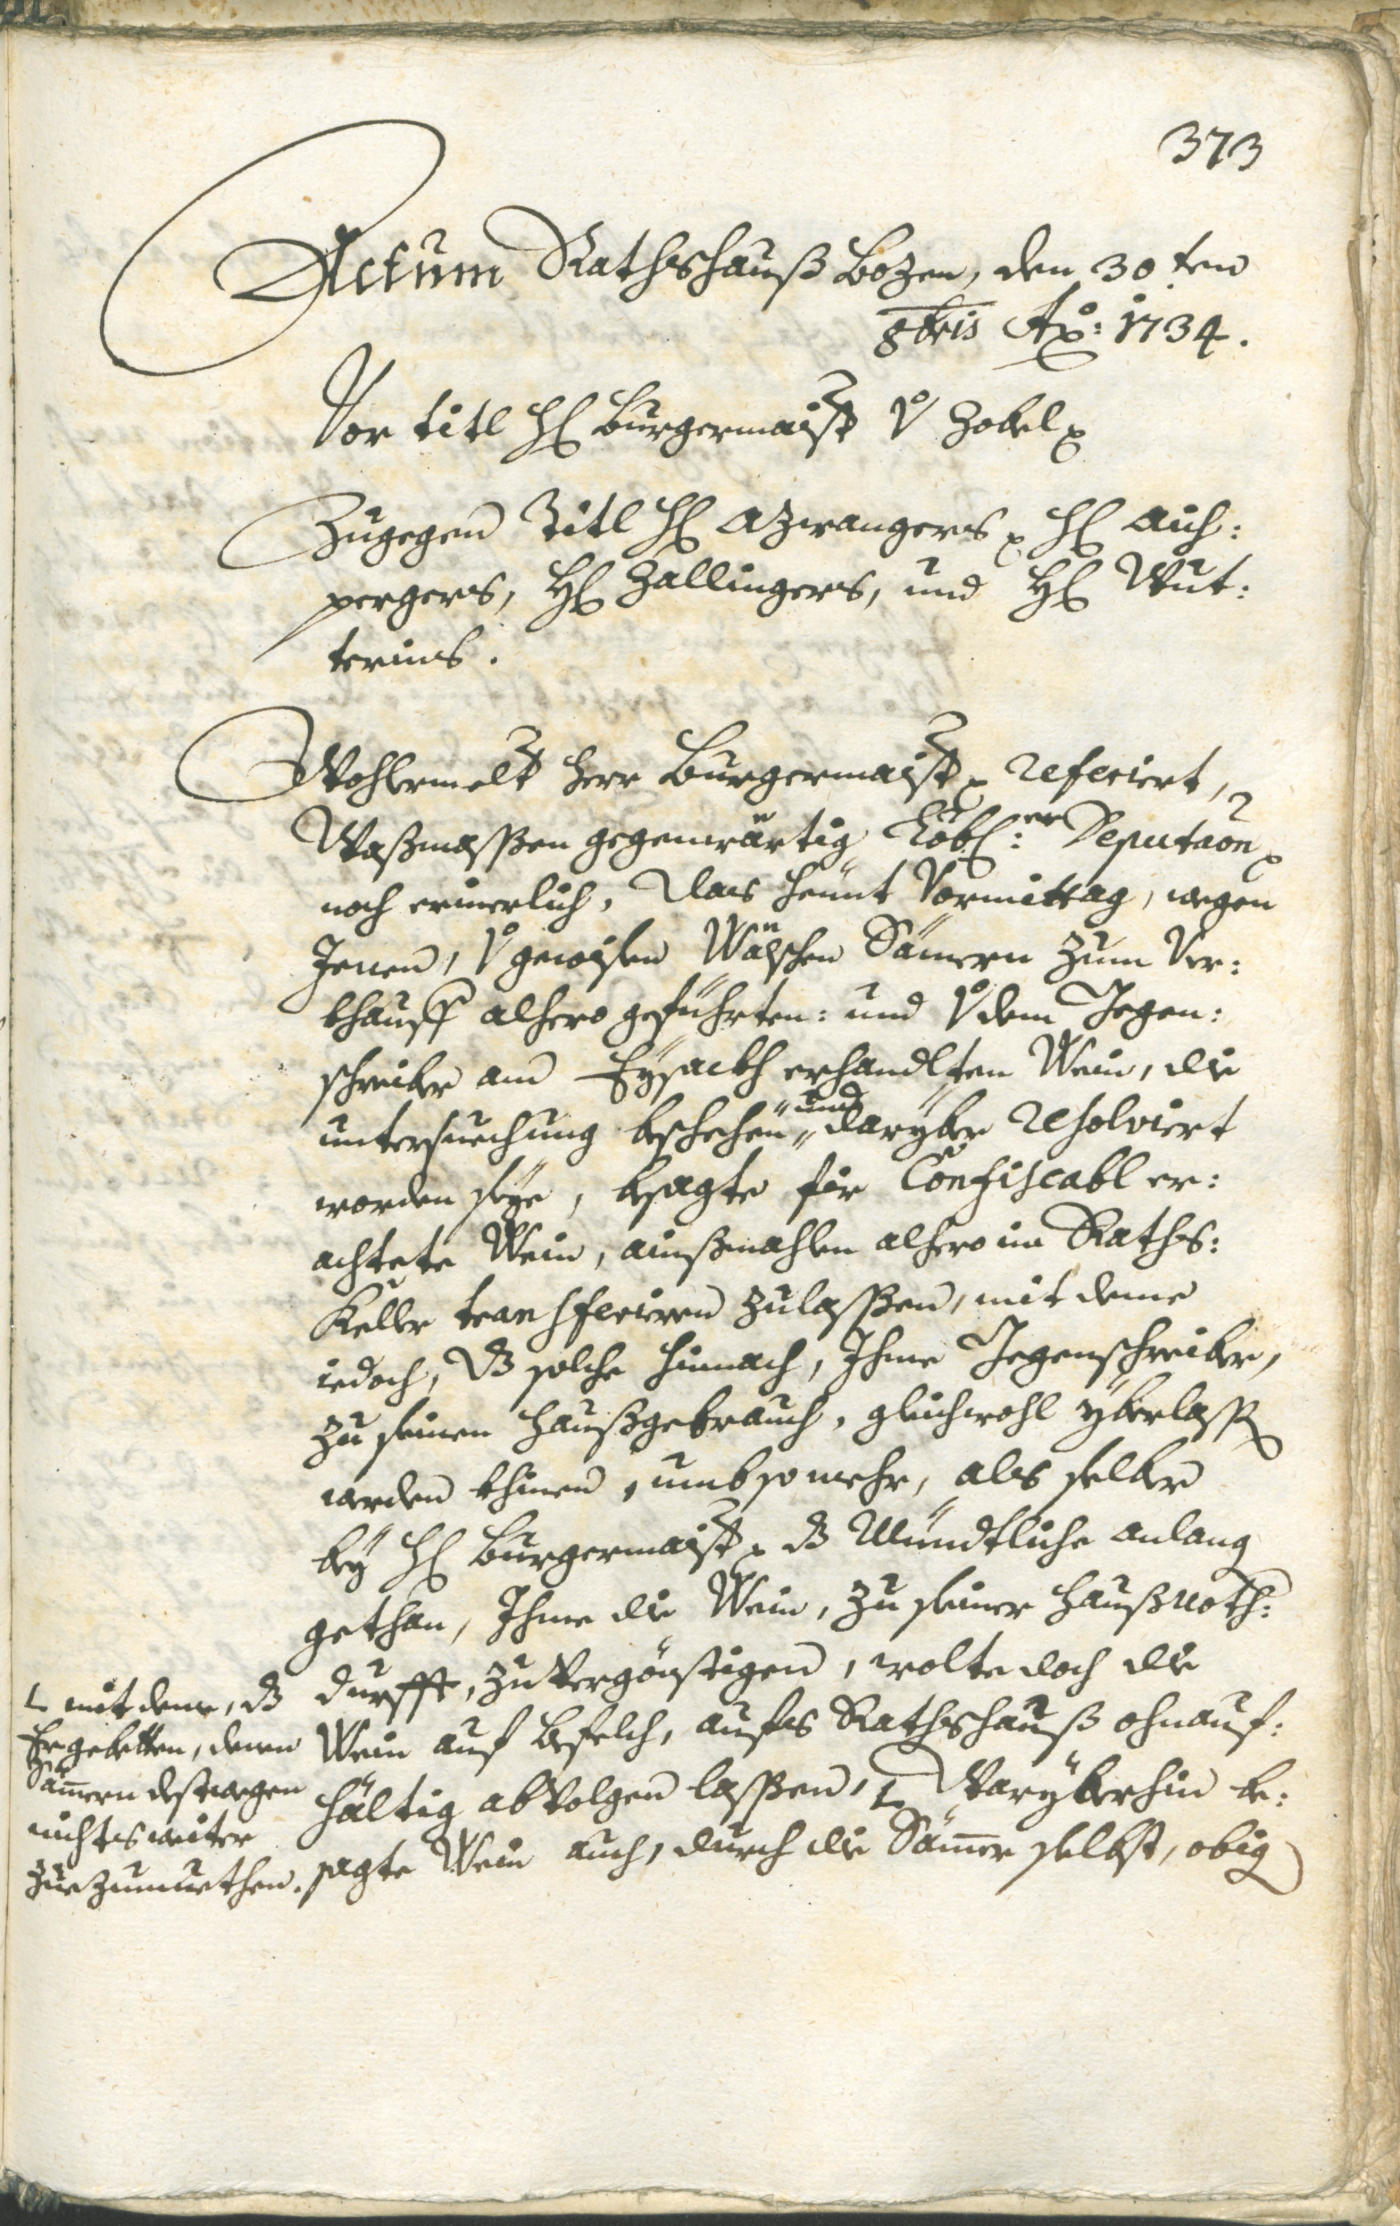 373
Actum Rathshauß Bozen, den 30ten
8bris Ao: 1734.
Vor titl H Burgermaistr v Zobel
Zugegen Titl H Azwangers, H Auh:
pergers, H Zallingers, und H Mut:
terins.
Wohlermelt Herr Burgermaistr referiert,
Waßmassen gegenwärtig Löbl:er Deputaon
noch erinerlich, das heünt Vormittag, wegen
Jenen, v gewisen Wälschen Sämern zum Ver:
khauff alhero geführten: und v dem Gegen:
schreiber am Eysackh erhandlten Wein, die
untersuechung beschehen und daryber resolviert
worden seye, besagte für Confiscabl er:
achtete Wein, ainßmahlen alhero in Raths:
Keller transferiren zulassen, mit deme
iedoch, dß solche hinnach, Ihme Gegenschreiber,
zu seinen haußgebrauch, gleichwohl yberlassn
werden khinen, umb so mehr, als selber
bey H Burgermaistr dß Mündtliche anlang
gethan, Ihme die Wein, zu seiner haußnoth:
durfft, zu vergönstigen, wolte doch die
Wein auf befelch, aufs Rathshauß ohnauf:
hältig abvolgen lassen, Daryberhin be:
sagte Wein auch, durch die Sämer selbst, obig
mit deme, dß
Er gebetten, denen
Sämern destwegen
nichts weiter
zue zumuethen.